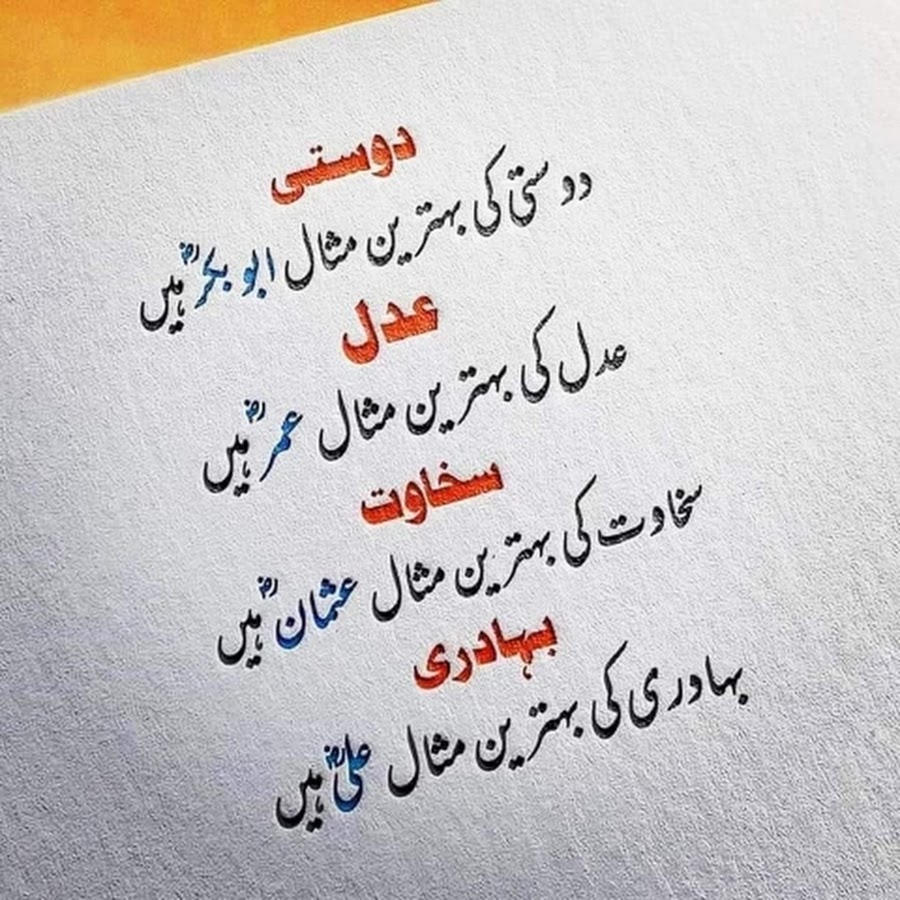 دوستی
دوستی کی بہترین مثال ابو بکرؓ ہیں
عدل
عدل کی بہترین مثال عمرؓ ہیں
سخاوت
سخاوت کی بہترین مثال عثمانؓ ہیں
بہادری
بہادری کی بہترین مثال علیؓ ہیں